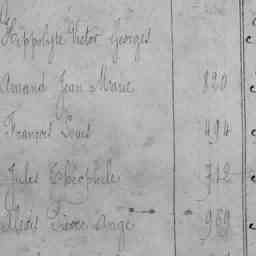 Hippolyte Victor Georges
Amand Jean Marie 820
François Louis 494
Jules Théophile 712
Pierre Ange 969